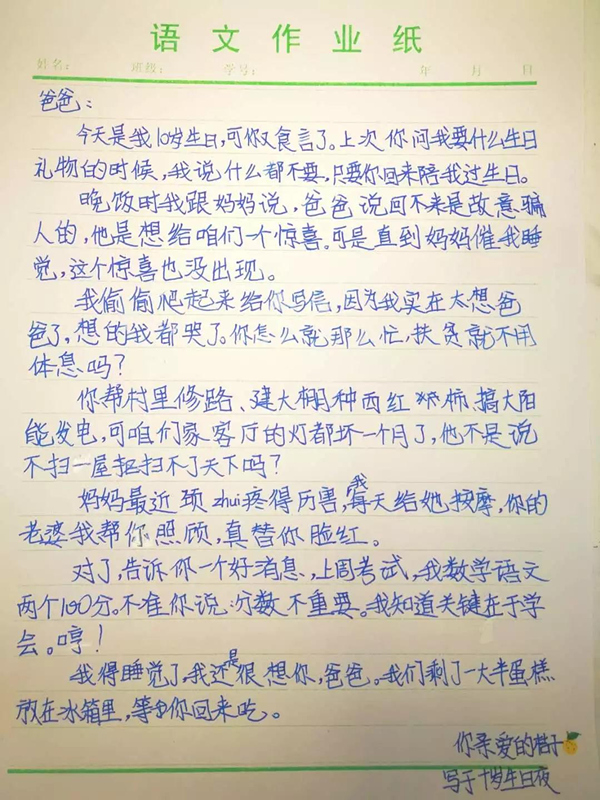 语文作业纸
姓名： 班级： 学号： 年 月 日
爸爸：
今天是我10岁生日，可你又食言了。上次你问我要什么生日
礼物的时候，我说什么都不要，只要你回来陪我过生日。
晚饭时我跟妈妈说，爸爸说回不来是故意骗
人的，他是想给咱们一个惊喜。可是直到妈妈催我睡
觉，这个惊喜也没出现。
我偷偷爬起来给你写信，因为我实在太想爸
爸了，想的我都哭了。你怎么就那么忙，扶贫就不用
体息吗？
你帮村里修路、建大棚种西红柿、搞太阳
能发电，可咱们家客厅的灯都坏一个月了，他不是说
不扫一屋扫不了天下吗？
妈妈最近颈zhui疼得厉害，我每天给她按摩，你的
老婆我帮你照顾，真替你脸红。
对了，告诉你一个好消息，上周考试，我数学语文
两个100分。不准你说：分数不重要。我知道关键在于学
会。哼！
我得睡觉了，我还是很想你，爸爸。我们剩了一大半蛋糕
放在冰箱里，等你回来吃。
你亲爱的桔子
写于十岁生日夜